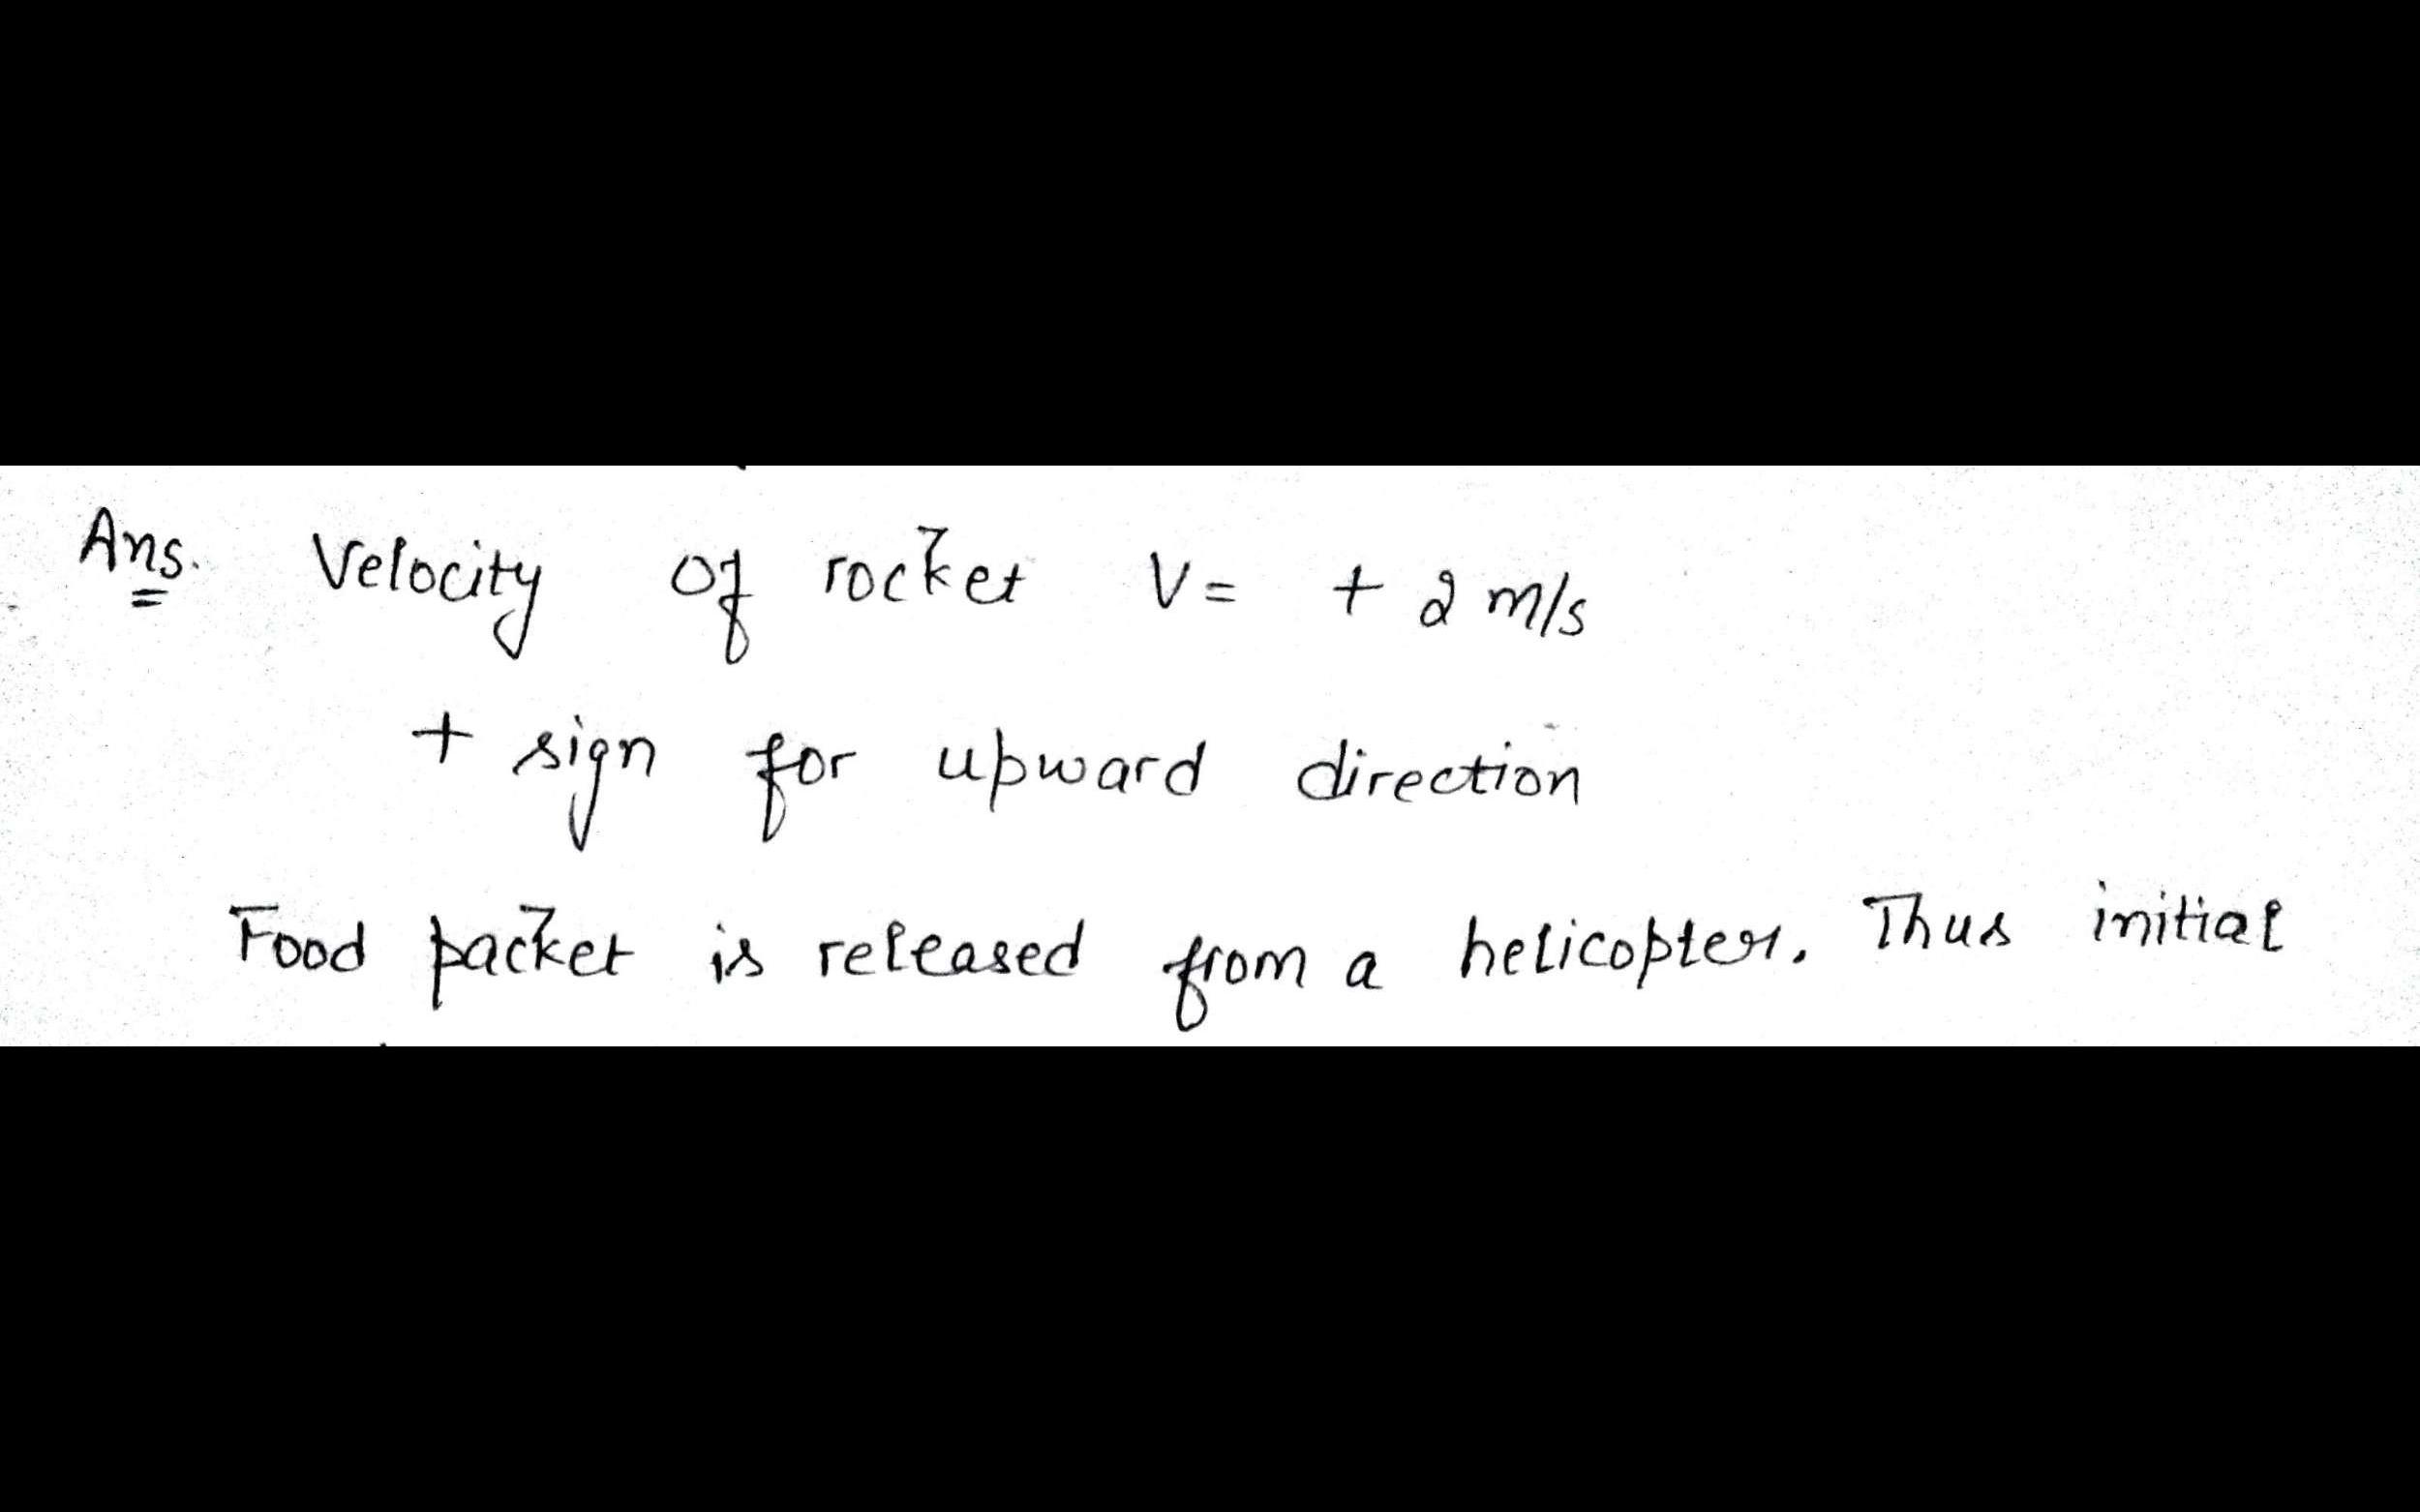 Ans. Velocity of rocket V= + 2 m/s
+ sign for upward direction
Food packet is released from a helicopter. Thus initial